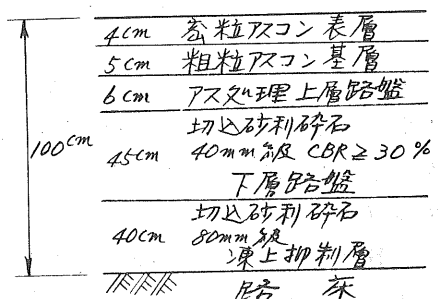 4cm 密粒アスコン 表層
5cm 粗粒アスコン 基層
6cm アス処理上層路盤
100cm
45cm
切込砂利砕石
40mm級 CBR≧30%
下層路盤
40cm
切込砂利砕石
80mm級
凍上抑制層
路床